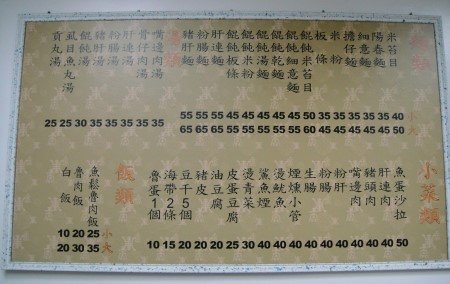 麵類
米苔目
陽春麵
細意麵
擔仔麵
米粉
板條
餛飩細意麵
餛飩乾麵
餛飩米粉
餛飩板條
肝連麵
粉腸麵
豬肝麵
湯類
嘴邊肉湯
骨仔肉湯
肝連湯
粉腸湯
豬肝湯
餛飩湯
虱目魚丸湯
貢丸湯
25 25 30 35 35 35 35 35
55 55 55 45 45 45 45 50 50 35 35 35 35 35 40 小
65 65 65 55 55 55 55 60 60 45 45 45 45 45 50 大
小菜類
魚蛋沙拉
肝連肉
豬頭肉
嘴邊肉
粉肝
粉腸
生腸
煙燻小管
燙魷魚
鯊魚煙
燙青菜
皮蛋豆腐
油豆腐
豬皮
豆干5個
海帶2條
魯蛋1個
10 15 20 20 20 25 30 40 40 40 40 40 40 40 40 40 50
飯類
魚鬆魯肉飯
魯肉飯
白飯
10 20 25 小
20 30 35 大